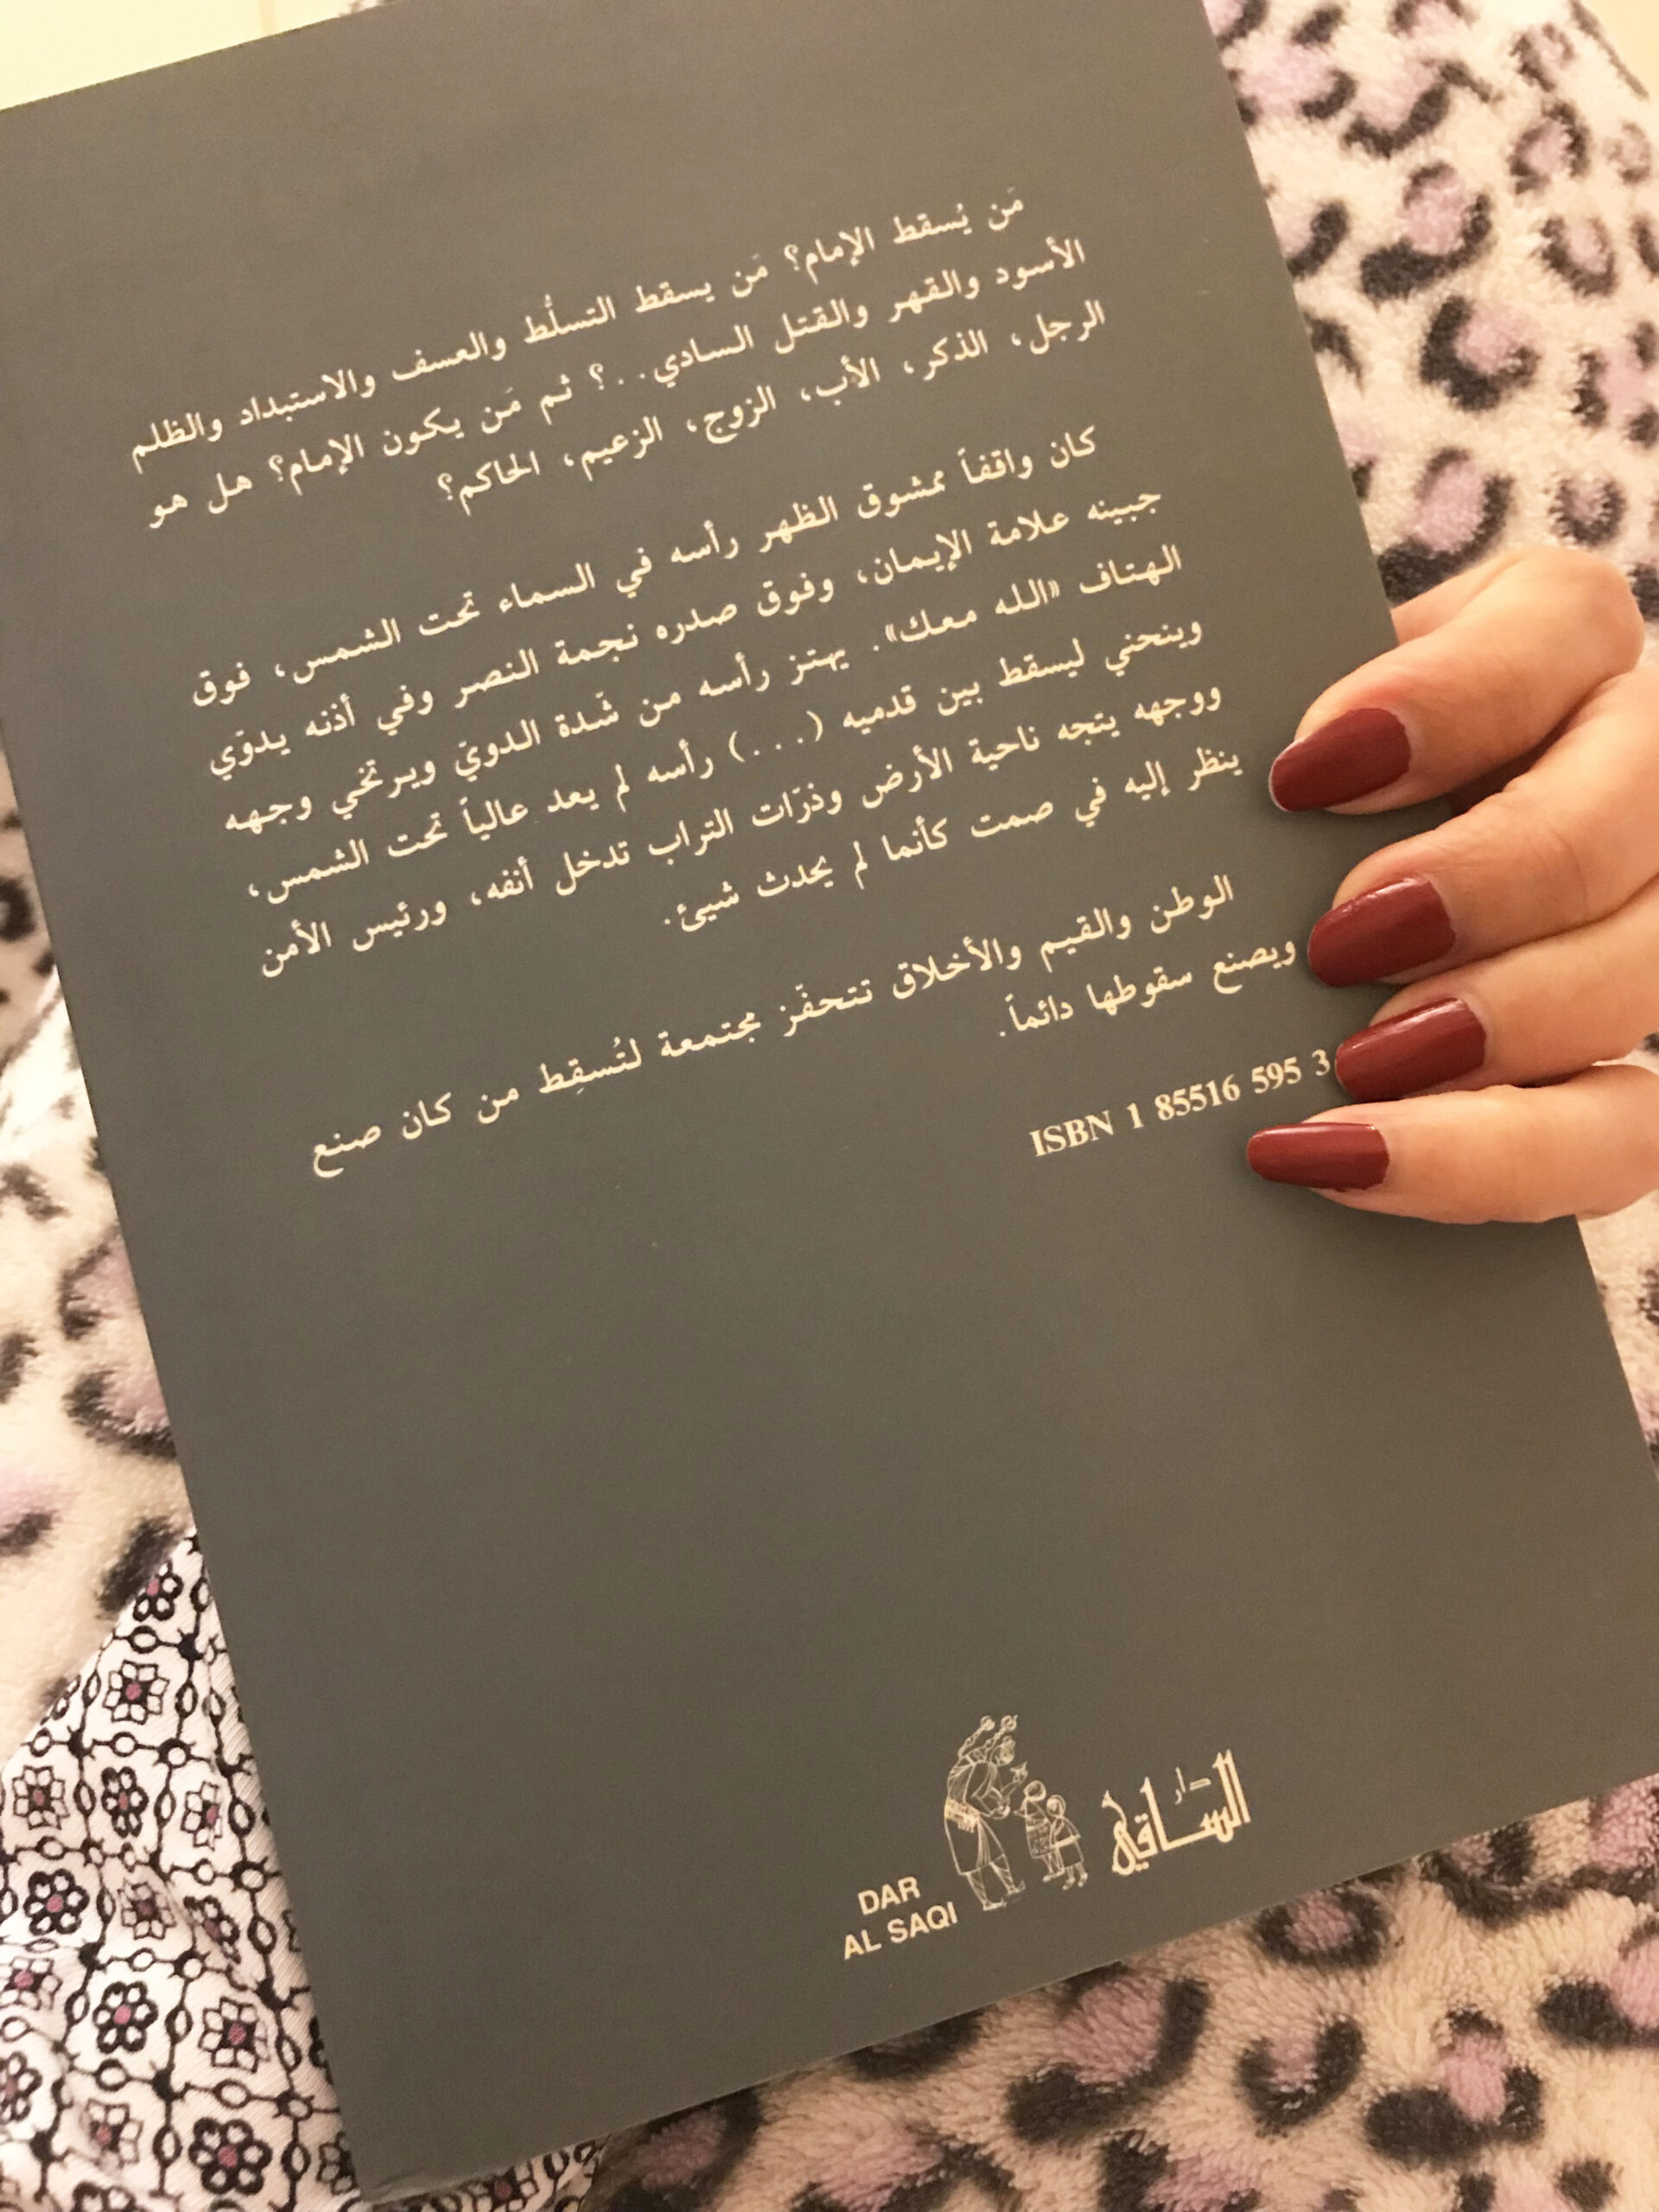 مَن يُسقط الإمام؟ مَن يسقط التسلُّط والعسف والاستبداد والظلم
الأسود والقهر والقتل السادي..؟ ثم مَن يكون الإمام؟ هل هو
الرجل، الذكر، الأب، الزوج، الزعيم، الحاكم؟
كان واقفاً ممشوق الظهر رأسه في السماء تحت الشمس، فوق
جبينه علامة الإيمان، وفوق صدره نجمة النصر وفي أذنه يدوّي
الهتاف «الله معك». يهتز رأسه من شّدة الدويّ ويرتخي وجهه
وينحني ليسقط بين قدميه (...) رأسه لم يعد عالياً تحت الشمس،
ووجهه يتجه ناحية الأرض وذرّات التراب تدخل أنفه، ورئيس الأمن
ينظر إليه في صمت كأنما لم يحدث شيئ.
الوطن والقيم والأخلاق تتحفّز مجتمعة لتُسقِط من كان صنع
ويصنع سقوطها دائماً.
ISBN 1 85516 595 3
دار
الساقي
DAR
AL SAQI